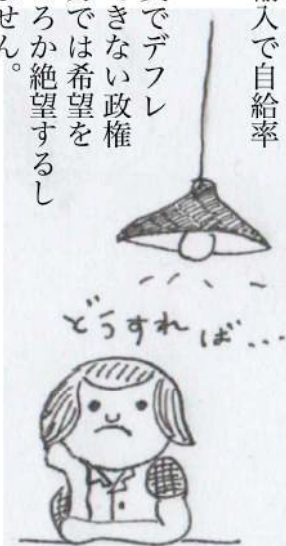 輸入で自給率
でデフレ
きない政権
では希望を
ろか絶望するし
せん。
どうすれば…